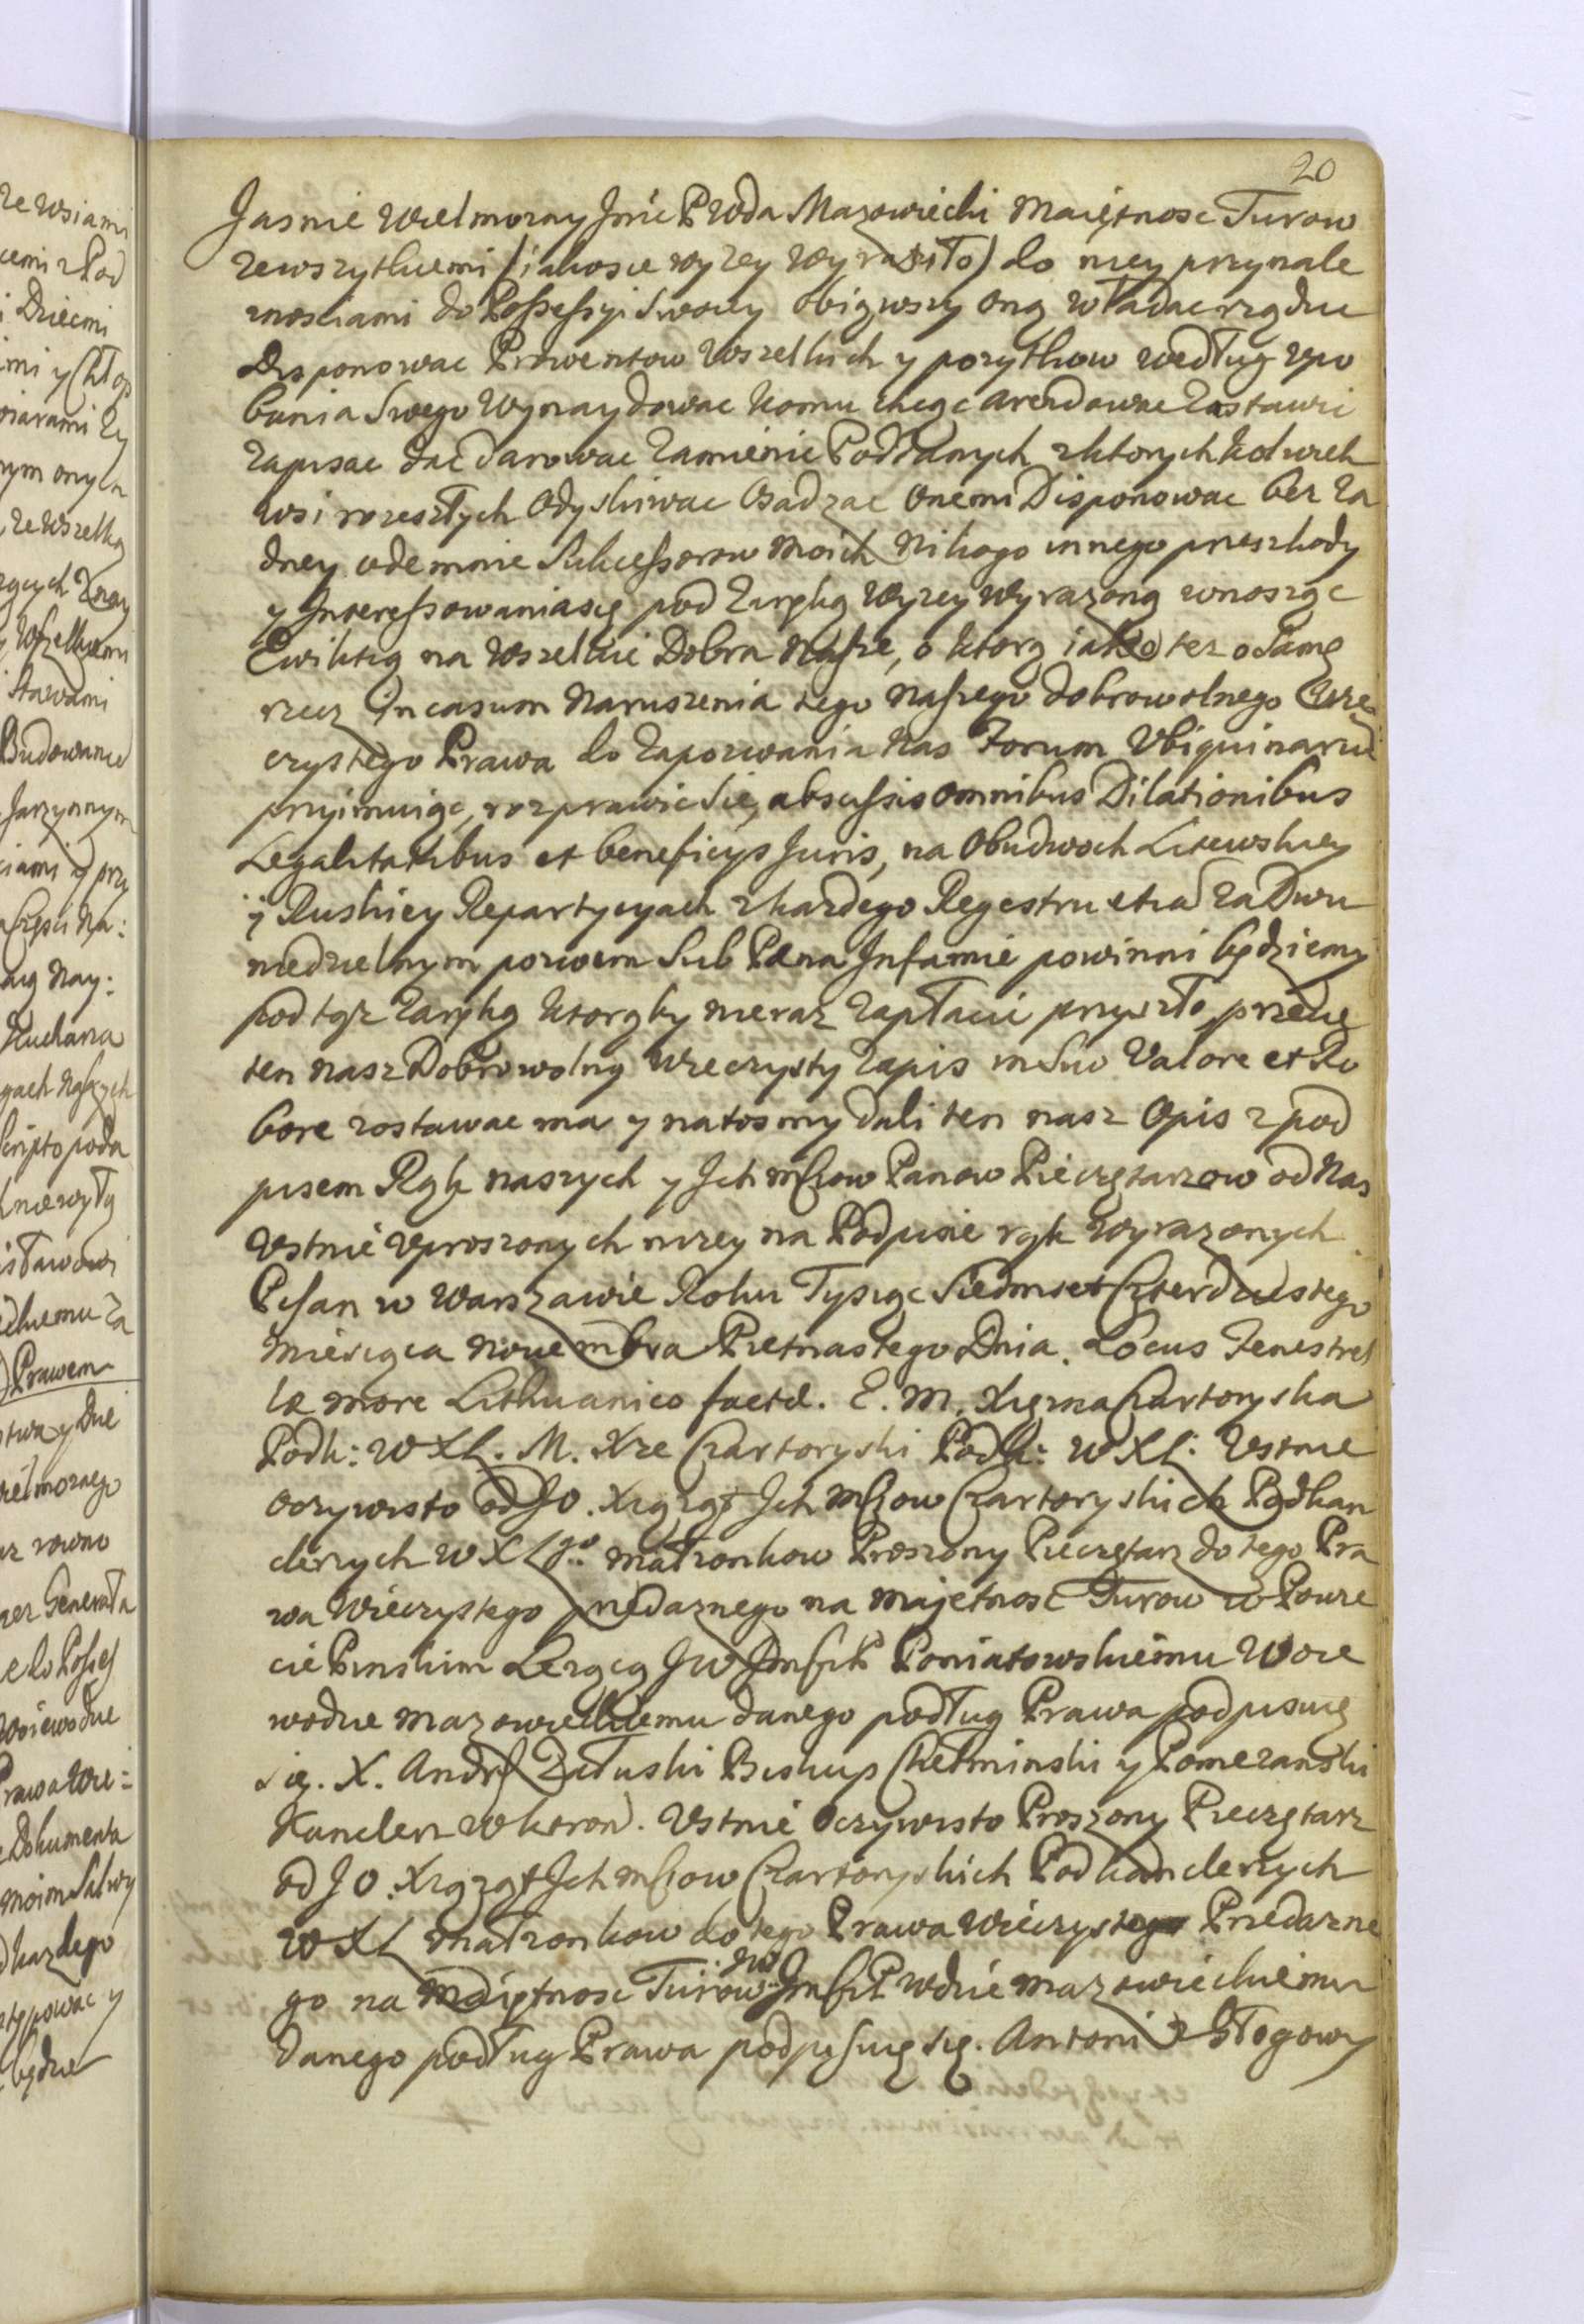 20
Jasnie Wielmozny Jmc P Wda Mazowiecki Maiętnosc Turow
zewszytkiemi (iakosie wyzey wyraziło) do niey przynale
znosciami do Possessyi Swoiey obiąwszy oną władac rządzic
disponowac Prowentow Wszelkich y pozytkow według upo
bania Swego Wynaydowac komu chcąc arendowac Zastawic
zapisac dac darowac zamienic Poddanych z ktorychkolwiek
wsi rozeszłych Odyskiwac Osadzac Onemi Disponowac bez za
dney odemnie Sukcessorow Moich Nikogo innego przeszkody
y Interessowaniasię pod Zaręką Wyzey Wyrazoną wnosząc
Ewikcią na Wszelkie Dobra Nasze, o ktorą iako tez o Samę
rzecz In casum Naruszenia tego naszego dobrowolnego Wie
czystego Prawa do zapozwania Nas Forum Ubiquinariu
przyimuiąc, rozprawic Sie, abscissis omnibus Dilationibus
Legalitatibus et beneficijs Juris, na Obudwoch Litewskiey
y Ruskiey Repartycyach z kazdego Regestru etia za Dwu
niedzielnym pozwem Sub Pæna Infamiæ powinni będziemy
pod tąz Zaręką ktorąby nieraz zapłacic przyszło, przecię
ten nasz Dobrowolny Wieczysty Zapis in Suo Valore et Ro
bore zostawac ma y natosmy dali ten nasz Opis z pod
pisem Rąk naszych y Ich mscow Panow Pieczętarzow od Nas
Ustnie Uproszonych nizey na Podpisie rąk Wyrazonych
Pisan w Warszawie Roku Tysiąc Siedmset Czterdziestego
Miesiąca Novembra Pietnastego Dnia. Locus Fenestrel
læ more Lithuanico factæ. E. M. Xięzna Czartoryska
Podk: W X L. M. Xze Czartoryski Podk: W X L: Ustnie
Oczywisto od JO. Xiąząt Ich Mscow Czartoryskich Podkan
clerzych W X L go: Małzonkow Proszony Pieczętarz do tego Pra
wa Wieczystego przedaznego na Majetnosc Turow w Powie
cie Pinskim Lezącą JW Jmsci P Poniatowskiemu Woie
wodzie Mazowieckiemu danego podług Prawa podpisuię
się. X. Andrz Załuski Biskup Chełminski y Pomezanski
Kanclerz W Koron. Ustnie Oczywisto Proszony Pieczętarz
od JO. Xiąząt Ich mscow Czartoryskich Podkanclerzych
W X L Małzonkow do tego Prawa Wieczystego Przedazne
go na Maiętnosc Turow JW Jmsci P Wdzie Mazowieckiemu
danego podług Prawa podpisuię się. Antoni z Głogowy